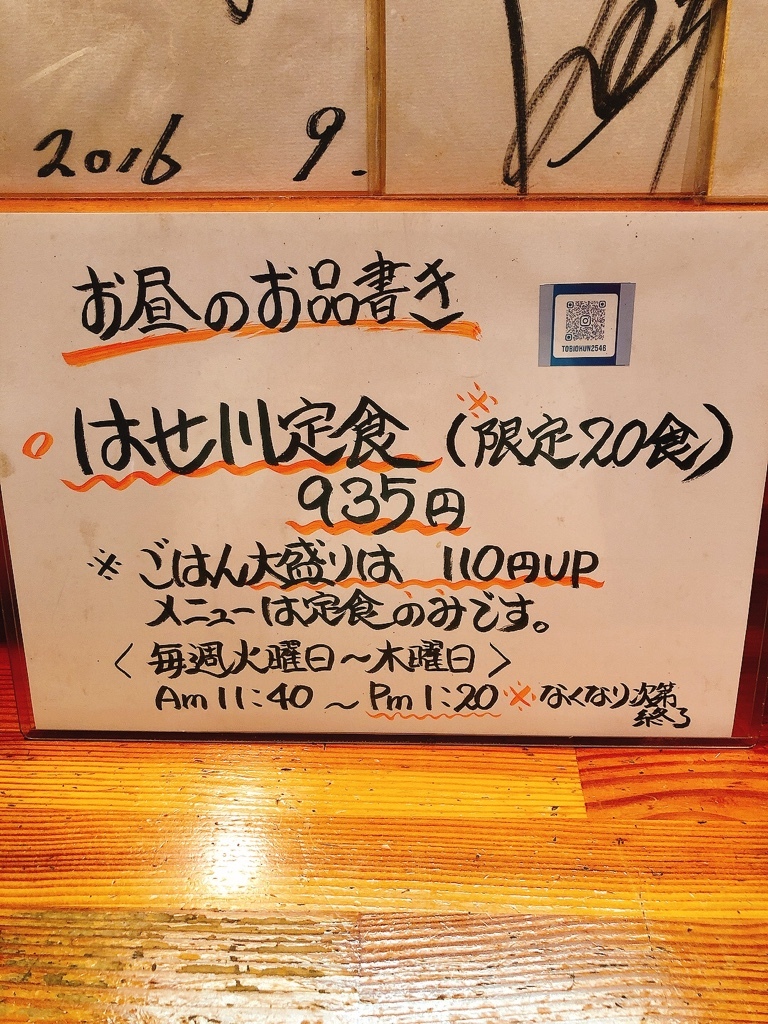 2016 9.
お昼のお品書き
TOBIOHUN2546
はせ川定食 (※限定20食)
935円
※ ごはん大盛りは 110円UP
メニューは定食のみです。
〈毎週火曜日～木曜日〉
Am 11:40 ～ Pm 1:20 ※なくなり次第
終了